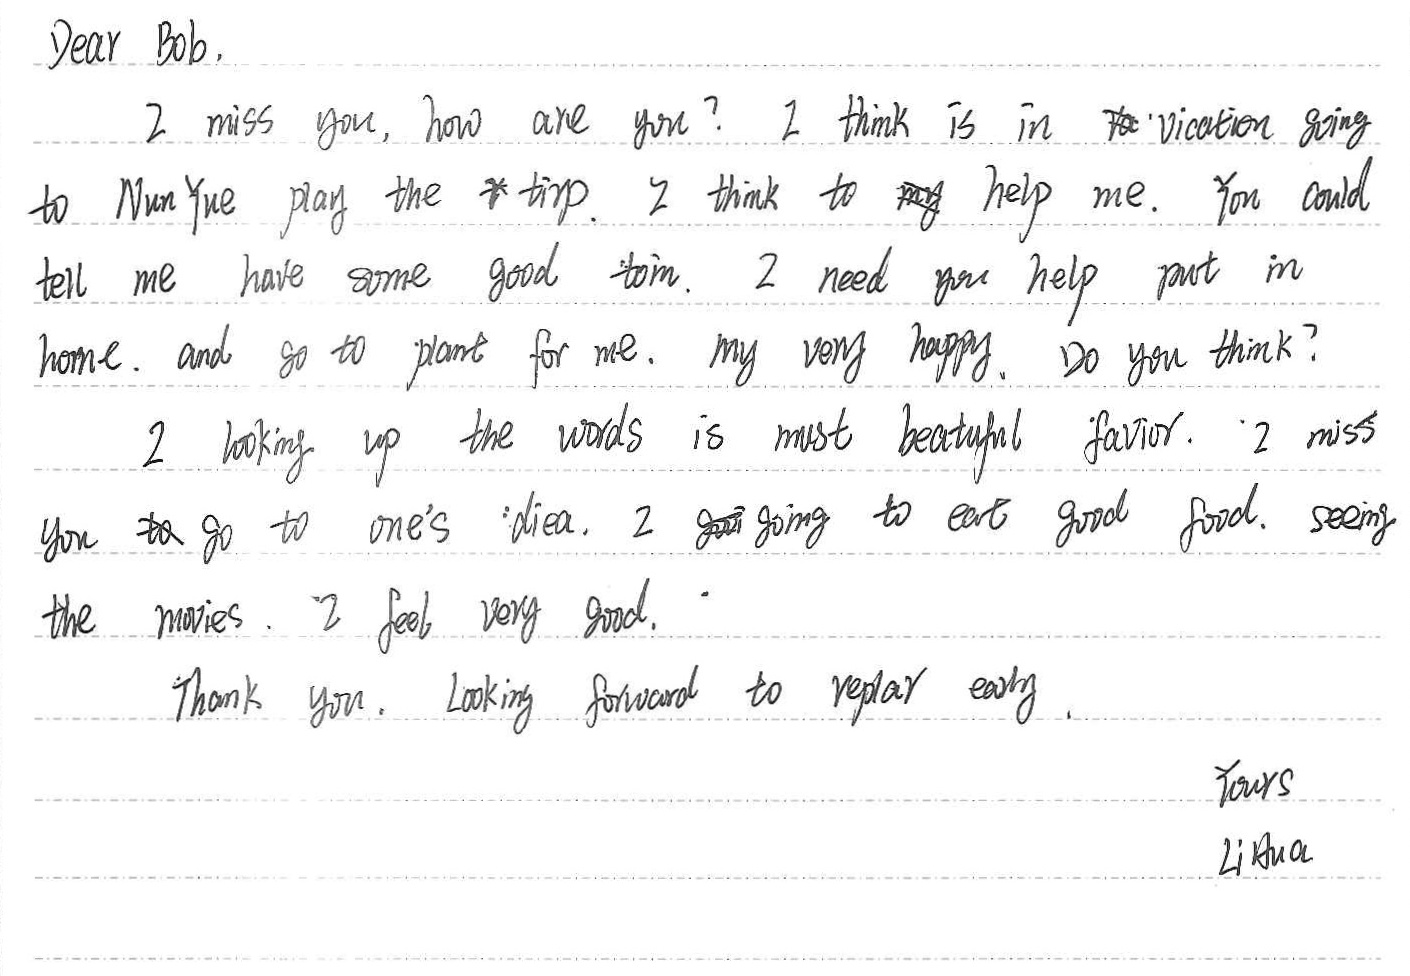 Dear Bob.
I miss you, how are you? I think is in vication going
to NunYue play the tirp. I think to help me. You could
tell me have some good toin. I need you help put in
home. and go to plant for me. my very happy. Do you think?
I looking up the words is must beatuful favior. I miss
you go to one's idiea. I going to eat good food. seeing
the movies. I feel very good.
Thank you. Looking forward to replar early.
Yours
Li Hua